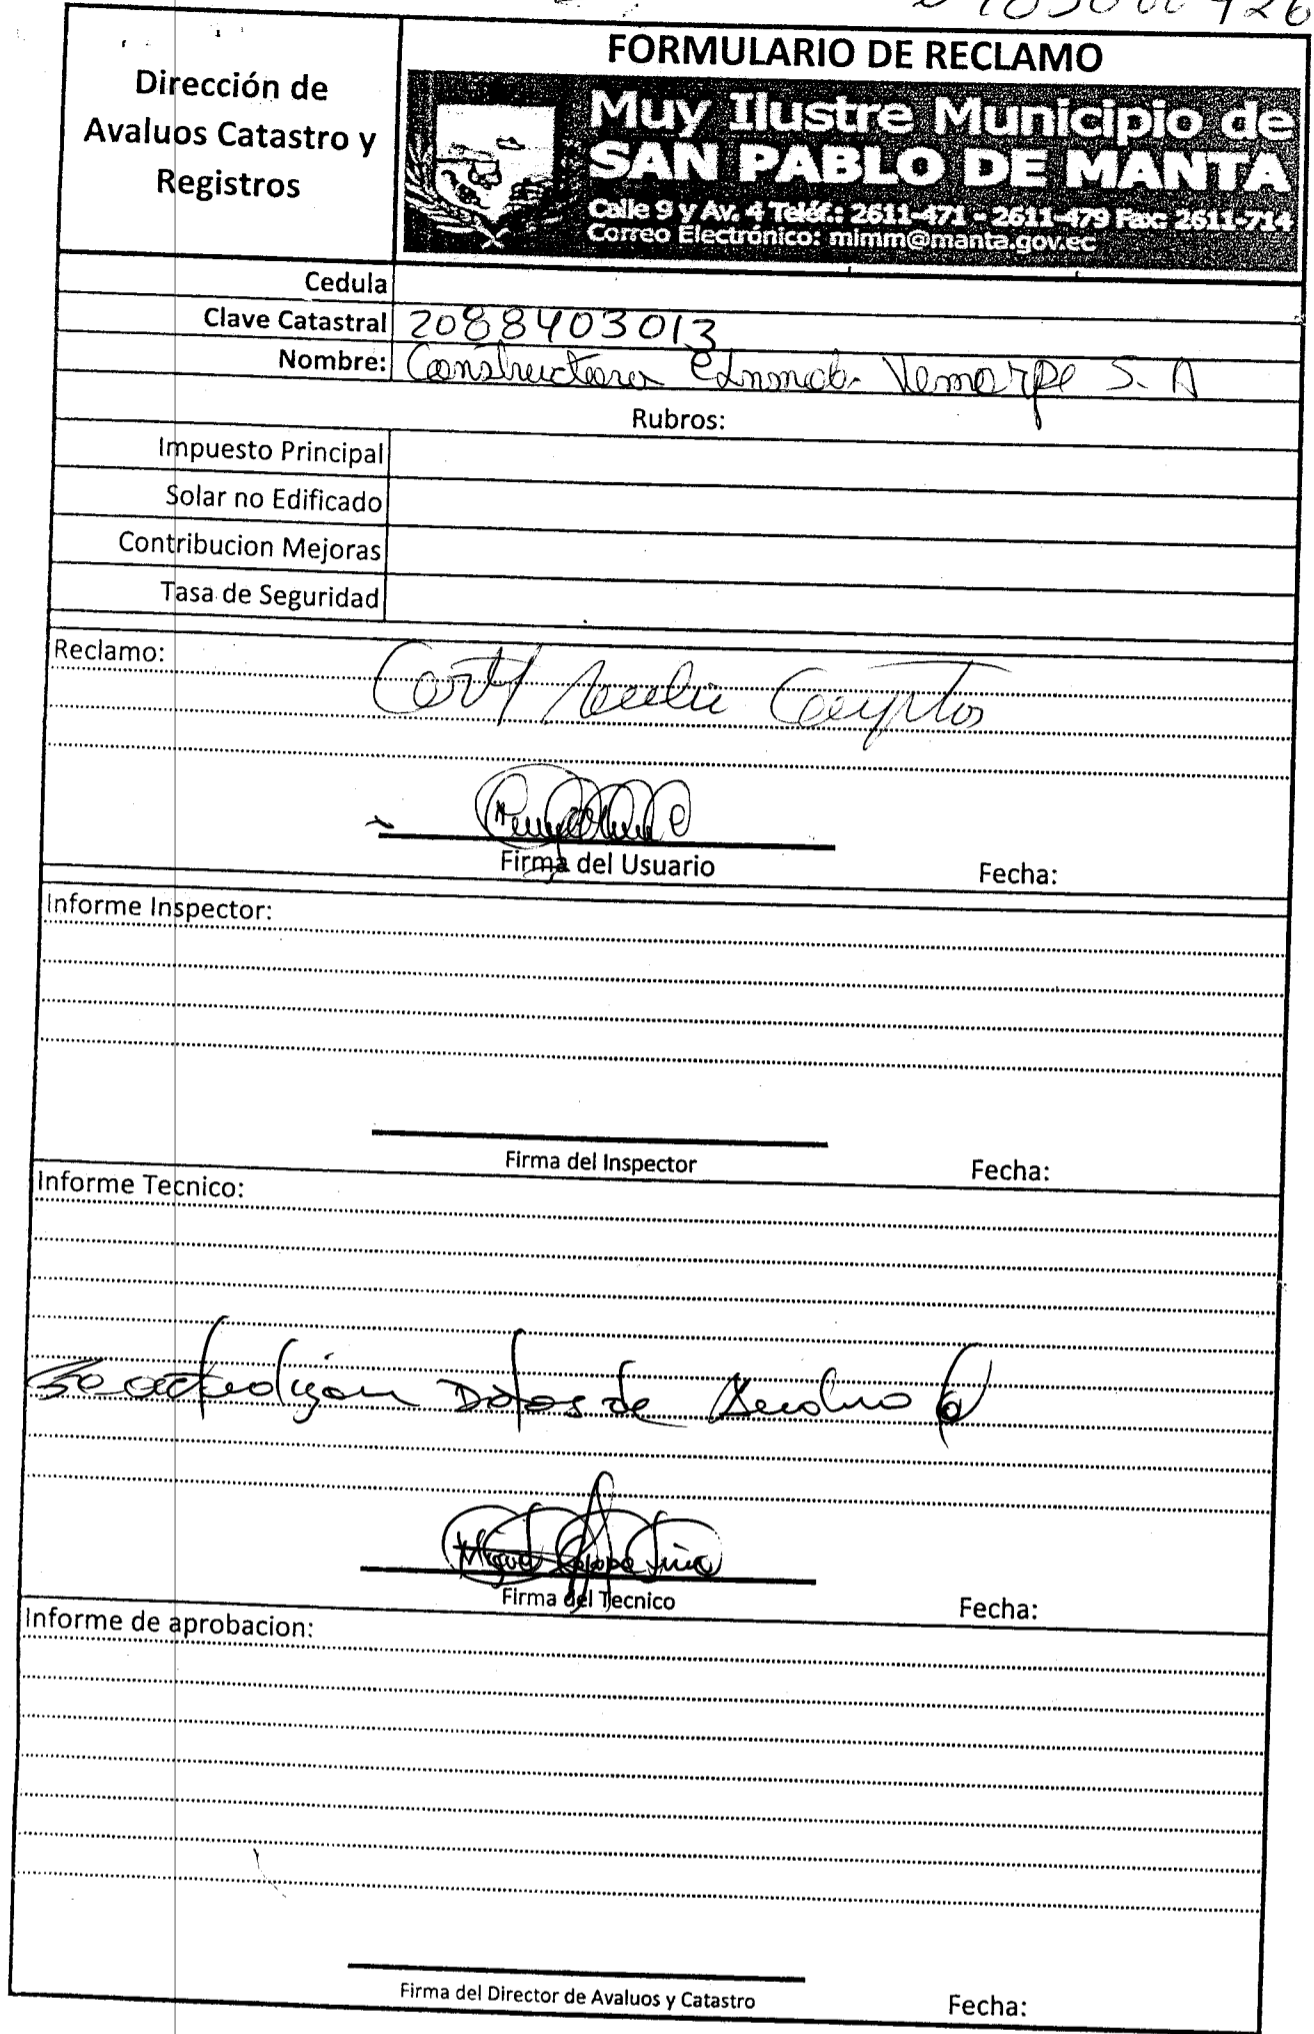 FORMULARIO DE RECLAMO
Dirección de
Avaluos Catastro y
Registros
Muy Ilustre Municipio de
SAN PABLO DE MANTA
Calle 9 y Av. 4 Teléf.: 2611-471 - 2611-479 Fax: 2611-714
Correo Electrónico: mimm@manta.gov.ec
Cedula
Clave Catastral 2088403013
Nombre: Constructora S. A
Rubros:
Impuesto Principal
Solar no Edificado
Contribucion Mejoras
Tasa de Seguridad
Reclamo:
Firma del Usuario Fecha:
Informe Inspector:
Firma del Inspector Fecha:
Informe Tecnico:
Datos de
Miguel
Firma del Tecnico Fecha:
Informe de aprobacion:
Firma del Director de Avaluos y Catastro Fecha: